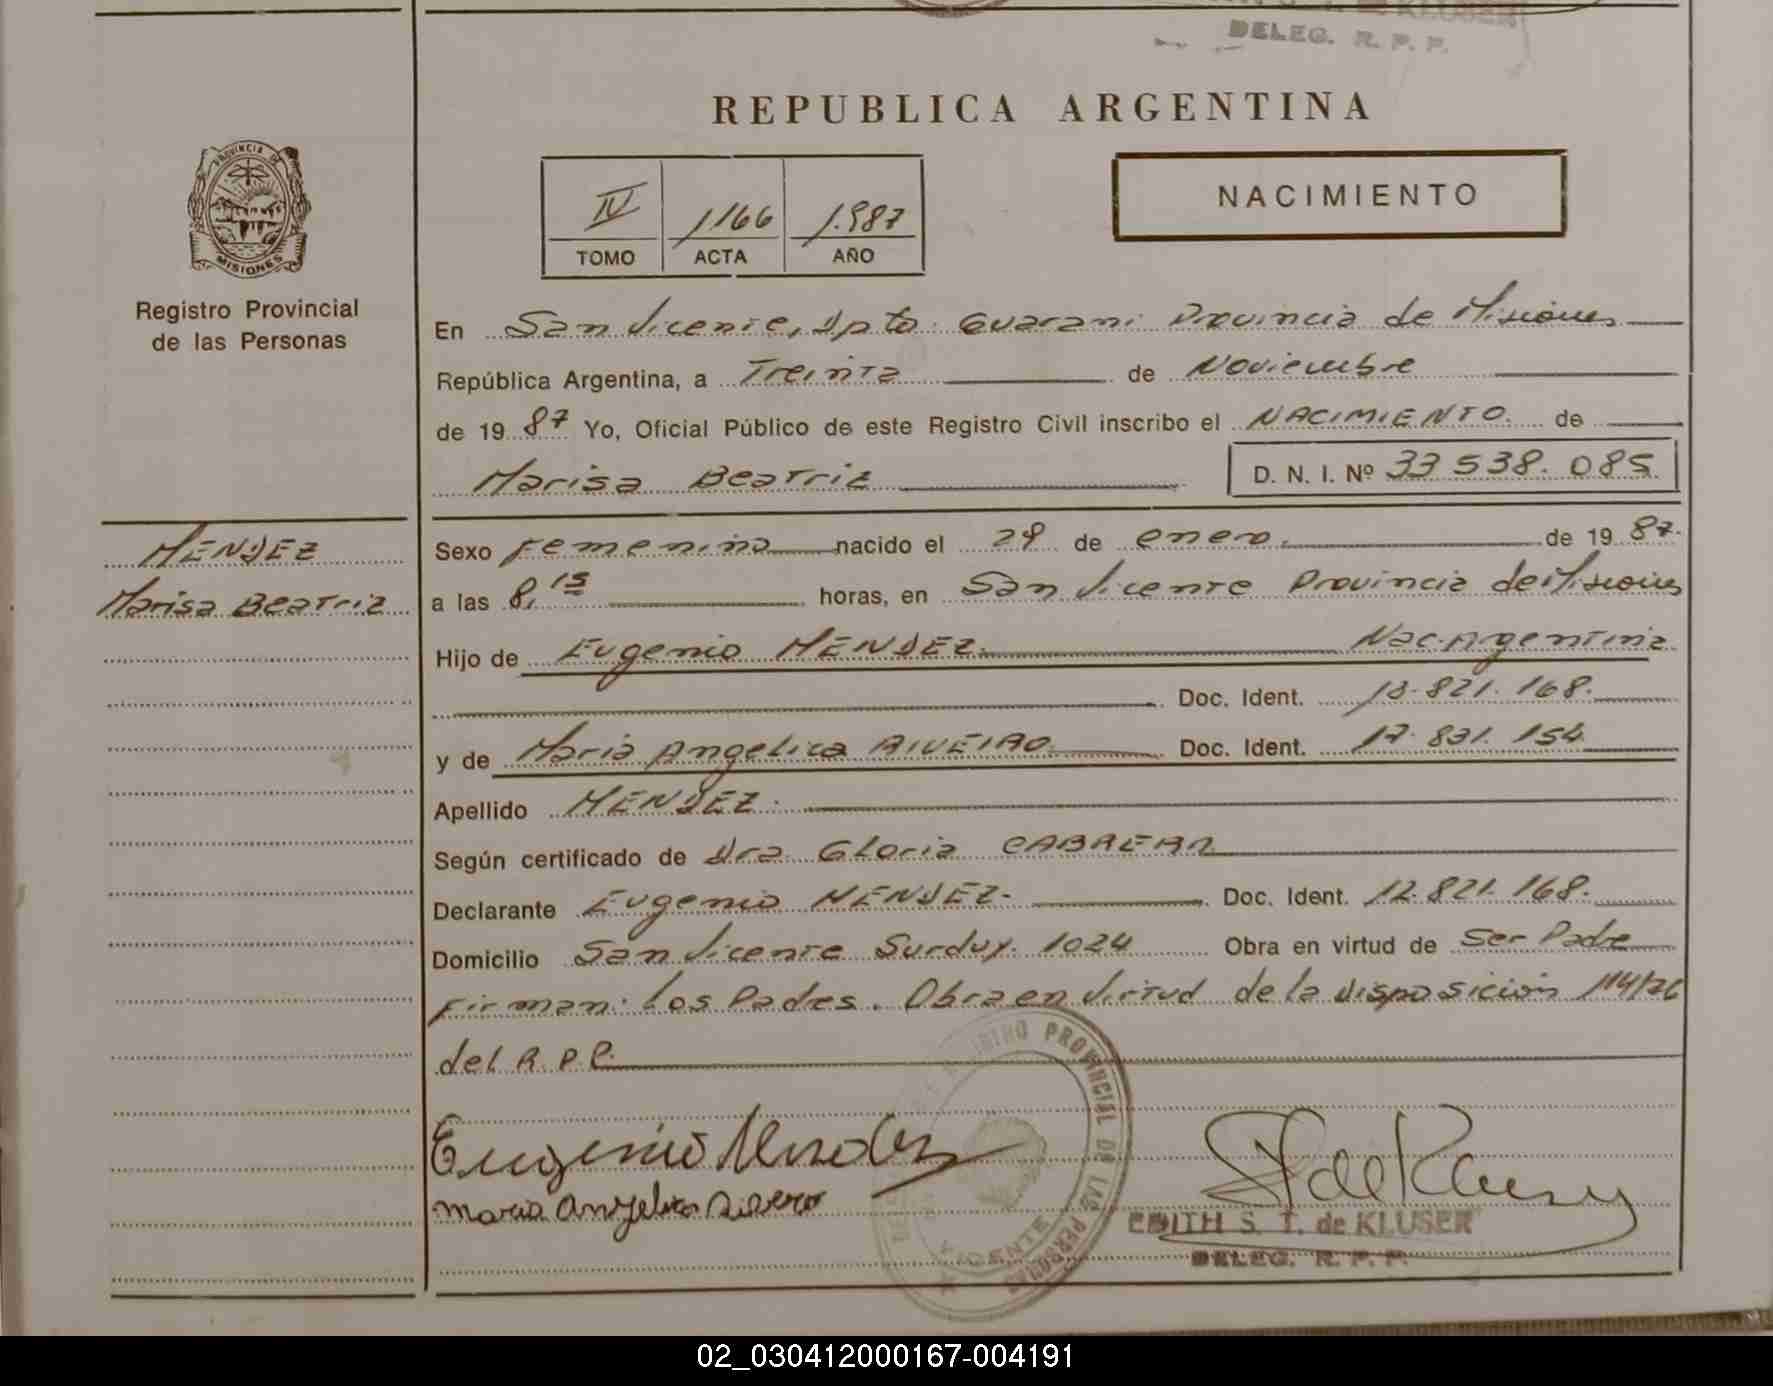 de KLUSER
DELEG. R. P. P.
REPUBLICA ARGENTINA
PROVINCIA DE
MISIONES
Registro Provincial
de las Personas
IV 1166 1.987
TOMO ACTA AÑO
NACIMIENTO
En San Vicente, Dpto. Guarani Provincia de Misiones
República Argentina, a Treinta de Noviembre
de 19 87 Yo, Oficial Público de este Registro Civil inscribo el NACIMIENTO. de
Marisa Beatriz D. N. I. Nº 33 538. 085.
MENDEZ
Marisa Beatriz
Sexo Femenino nacido el 29 de enero. de 19 87.
a las 8,15 horas, en San Vicente Provincia de Misiones
Hijo de Eugenio MENDEZ. Nac. Argentina
Doc. Ident. 13.821.168.
y de Maria Angelica RIVEIRO Doc. Ident. 17.831.154
Apellido MENDEZ.
Según certificado de Dra. Gloria CABRERA
Declarante Eugenio MENDEZ- Doc. Ident. 12.821.168.
Domicilio San Vicente Surduy. 1024 Obra en virtud de Ser Padre
Firman: los Padres. Obra en Virtud de la Disposición 114/26
del R.P.P.
Eugenio Mendez
Maria Angelica Rivero
REGISTRO PROVINCIAL DE LAS PERSONAS
VICENTE
EDITH S. T. de KLUSER
DELEG. R. P. P.
02_030412000167-004191